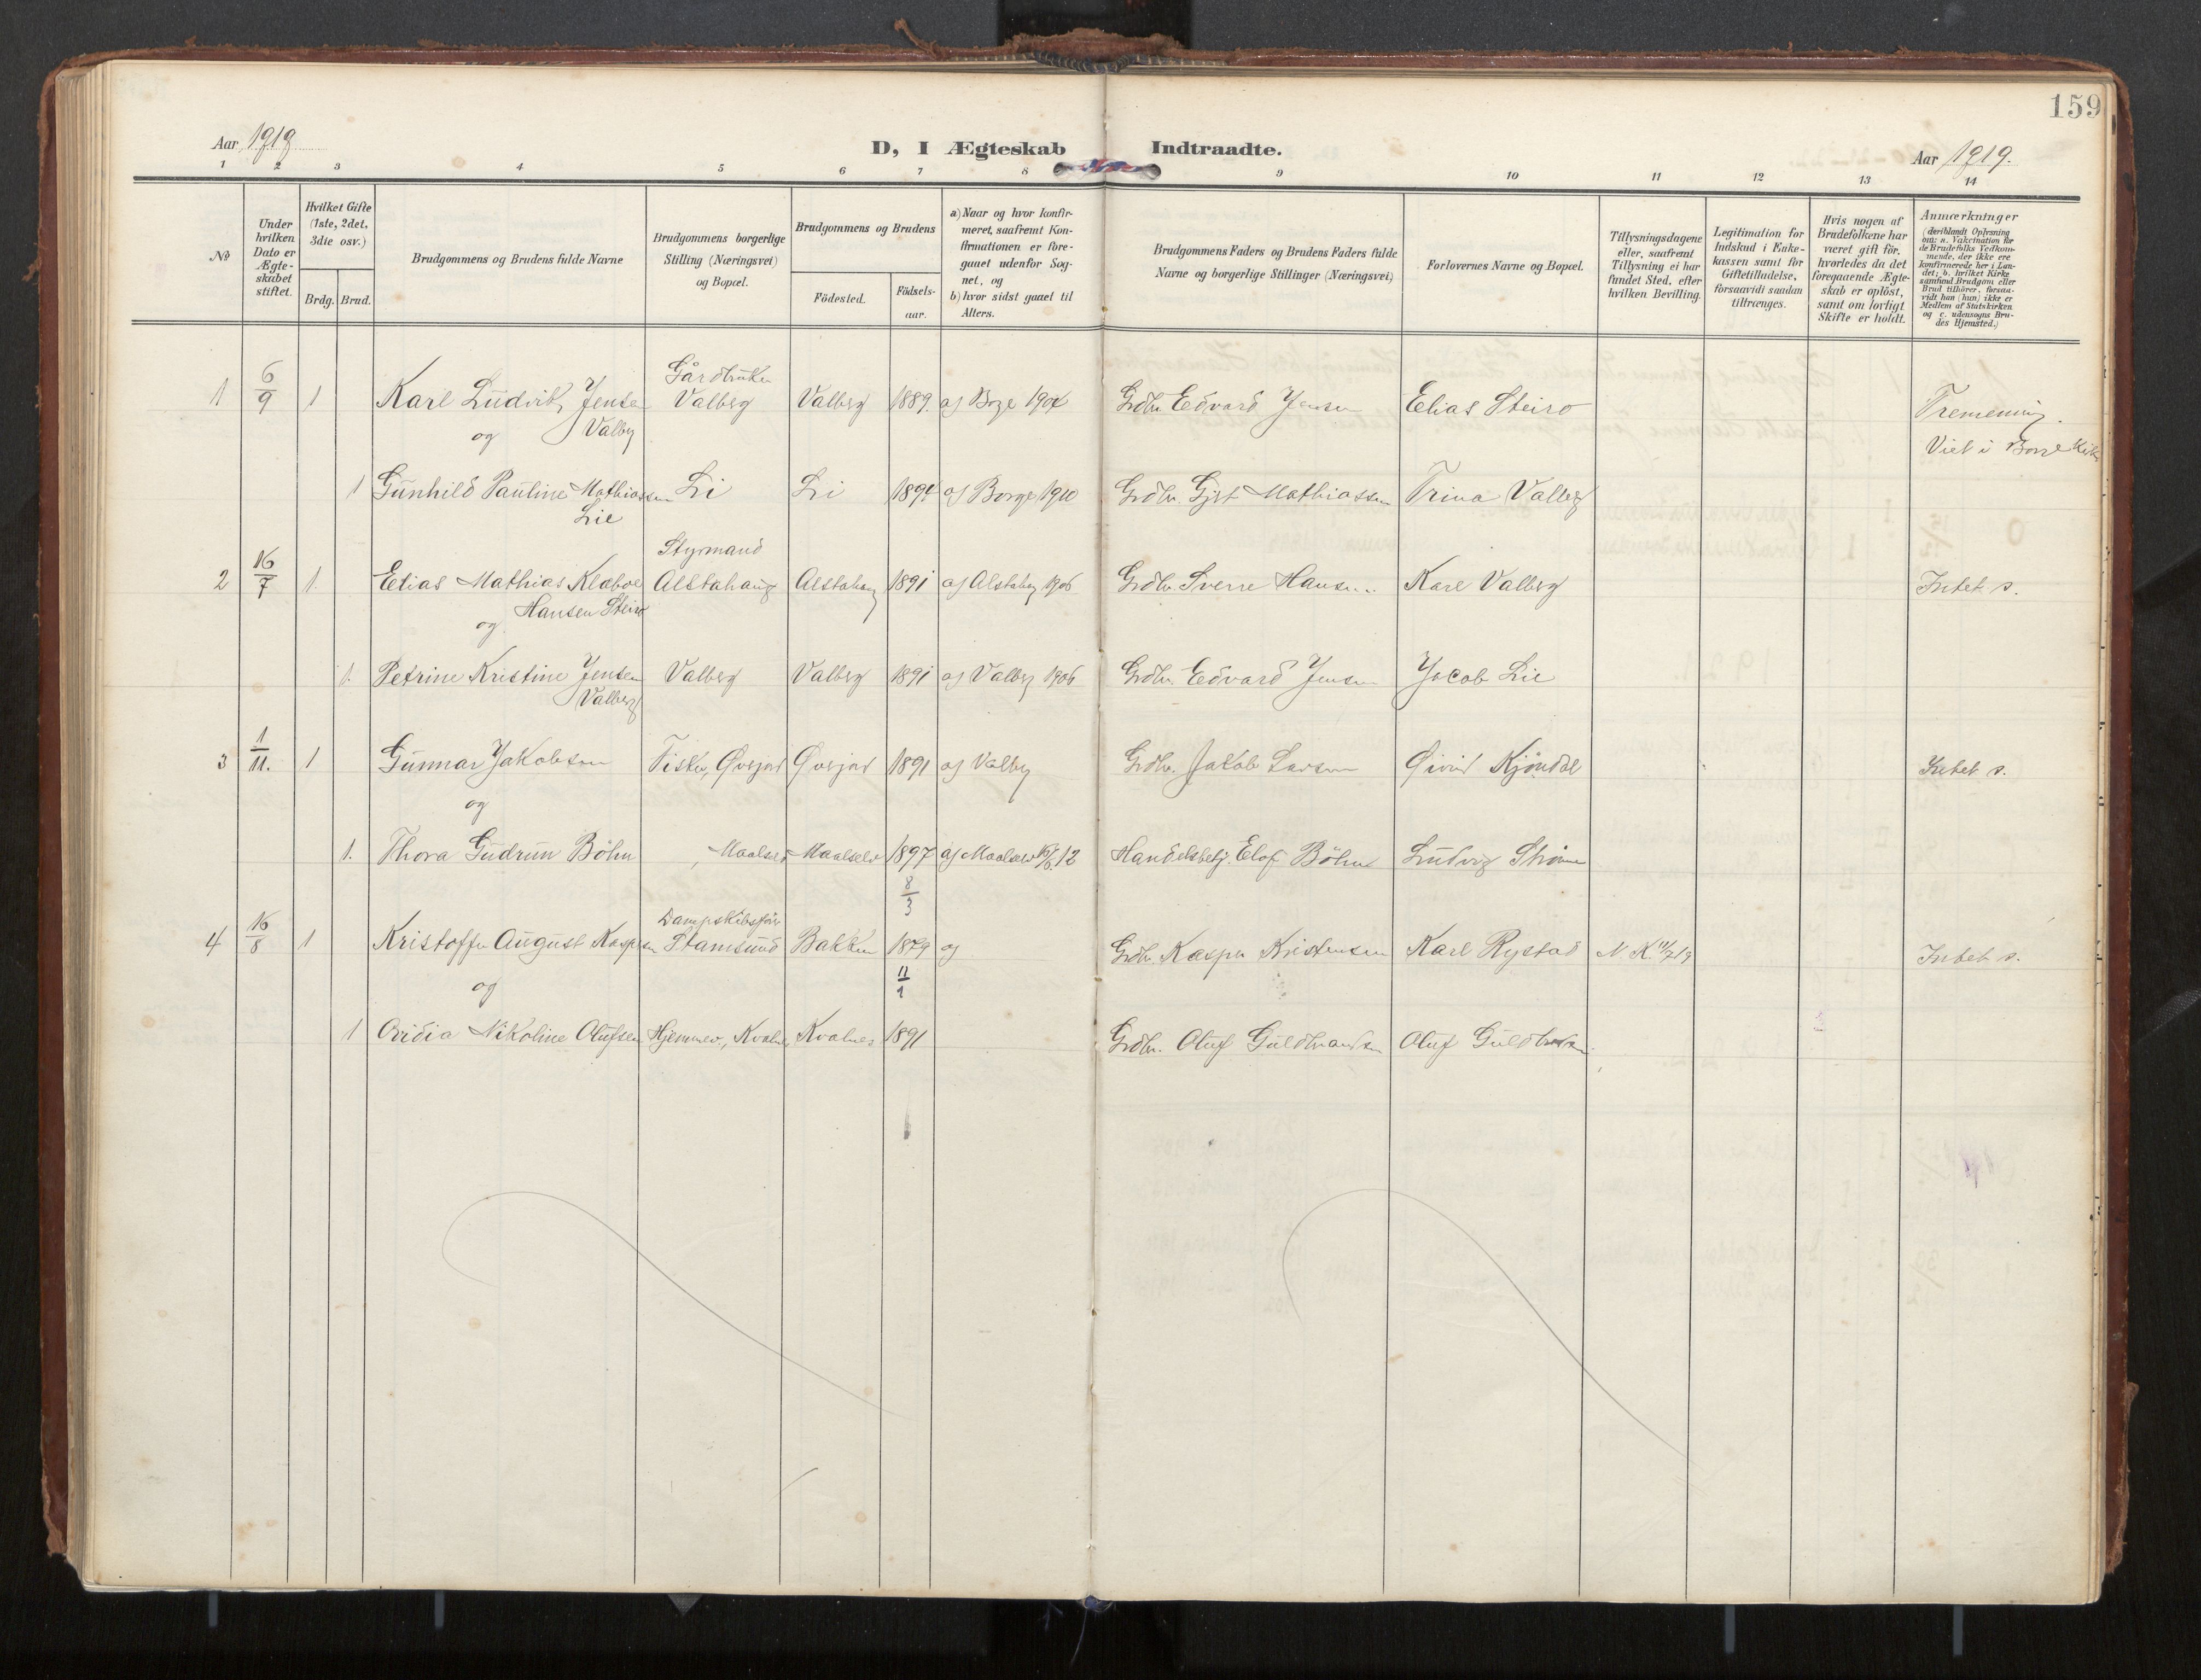 159
Aar 1919
D, I Ægteskab Indtraadte.
Aar 1919.
1 2 3 4 5 6 7 8 9 10 11 12 13 14
No
Under hvilken Dato er Ægteskabet stiftet.
Hvilket Gifte (1ste, 2det, 3die osv.)
Brdg. Brud.
Brudgommens og Brudens fulde Navne
Brudgommens borgerlige Stilling (Næringsvei) og Bopæl.
Brudgommens og Brudens
Födested.
Födsels-aar.
a) Naar og hvor konfirmeret, saafremt Konfirmationen er foregaaet udenfor Sognet, og
b) hvor sidst gaaet til Alters.
Brudgommens Faders og Brudens Faders fulde Navne og borgerlige Stillinger (Næringsvei)
Forlovernes Navne og Bopæl.
Tillysningsdagene eller, saafremt Tillysning ei har fundet Sted, efter hvilken Bevilling.
Legitimation for Indskud i Enkekassen samt for Giftetilladelse, forsaavidt saadan tiltrænges.
Hvis nogen af Brudefolkene har været gift för, hvorledes da det foregaaende Ægteskab er oplöst, samt om lovligt Skifte er holdt.
Anmærkninger
(deriblandt Oplysning om: a. Vakcination for de Brudefolks Vedkommende, der ikke ere konfirmerede her i Landet; b. hvilket Kirkesamfund Brudgom eller Brud tilhörer, forsaavidt han (hun) ikke er Medlem af Statskirken og c. udensogns Brudes Hjemsted.)
Gårdbruker
1 6/9 1 Karl Ludvik Jensen Valberg Valberg 1889. a) Borge 1904 Grdbr. Edvard Jensen Elias Steiro Tremening.
og Valberg
Viet i Borge Kirke
1 Gunhild Pauline Mathiassen Li Li 1894 a) Borge 1910 Grdbr. Gjert Mathiassen Trina Valberg
Lie
Styrmand
2 16/7 1. Elias Mathias Klæboe Alstahaug Alstahaug 1891 a) Alstahaug 1906 Grdbr. Sverre Hansen Karl Valberg Intet s.
og Hansen Steiro
1. Petrine Kristine Jensen Valberg Valberg 1891 a) Valberg 1906 Grdbr. Edvard Jensen Jacob Lie
Valberg
3 1/11. 1 Gunnar Jakobsen Fisker, Øvsjord Øvsjord 1891 a) Valberg Grdbr. Jakob Larsen Øivind Kjøndal Intet s.
og
1. Thora Gudrun Böhn Maalselv Maalselv 1897 a) Maalselv 12 Handelsbetj. Elof Böhn Ludvig Strøm
8/3
Dampskibsfører
4 16/8 1 Kristoffer August Kaspersen Stamsund Bakken 1879 a) Grdbr. Kasper Kristensen Karl Rystad N K 11/7 19 Intet s.
og
11/1
1 Ovidia Nikoline Olufsen Hjemmev., Kvalnes Kvalnes 1891 Grdbr. Oluf Guldbrandsen Oluf Guldbrandsen